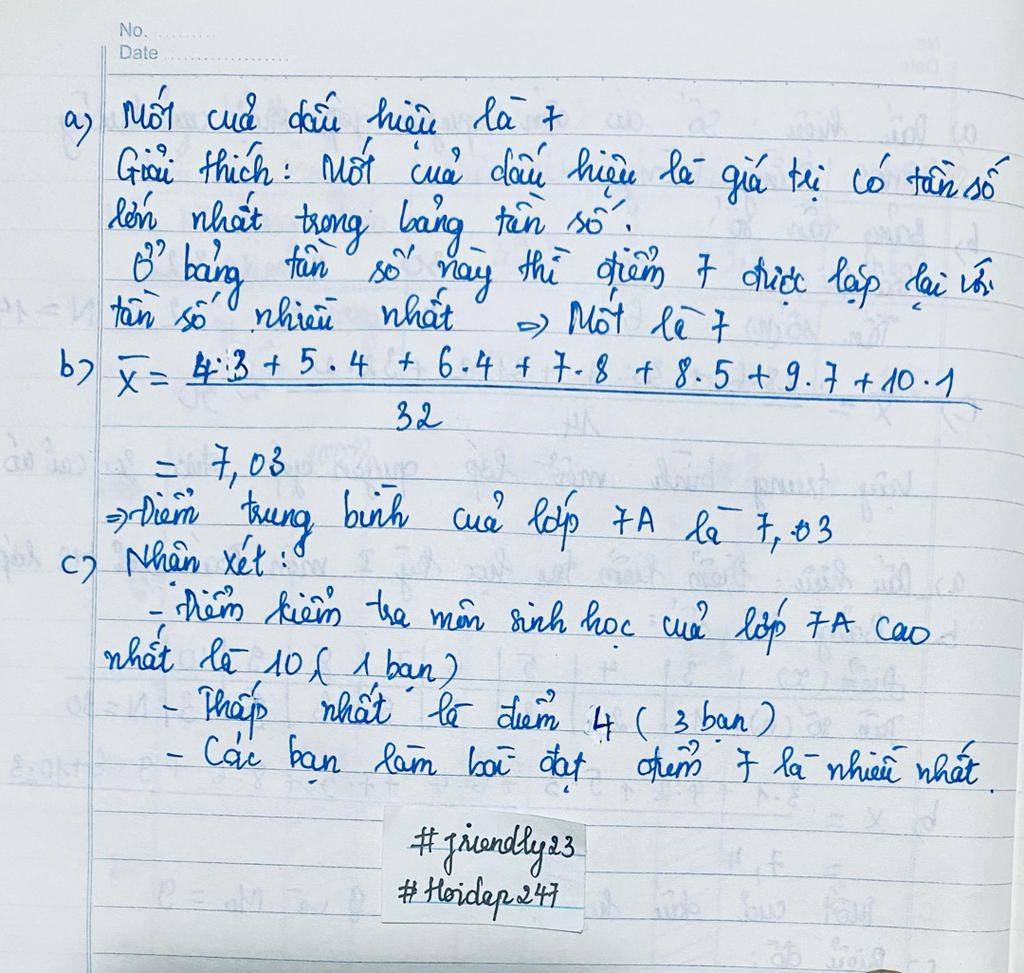 No. ..........
Date ....................
a) Mốt cuả dấu hiệu là 7
Giải thích: Mốt cuả dấu hiệu là giá trị có tần số
lớn nhất trong bảng tần số.
Ở bảng tần số này thì điểm 7 được lặp lại với
tần số nhiều nhất => Mốt là 7
b) X̄ = 4.3 + 5.4 + 6.4 + 7.8 + 8.5 + 9.7 + 10.1
32
= 7,03
=> Điểm trung bình cuả lớp 7A là 7,03
c) Nhận xét:
- Điểm kiểm tra môn sinh học cuả lớp 7A cao
nhất là 10 ( 1 bạn)
- Thấp nhất là điểm 4 ( 3 bạn)
- Các bạn làm bài đạt điểm 7 là nhiều nhất.
# friendly23
# Hoidap247